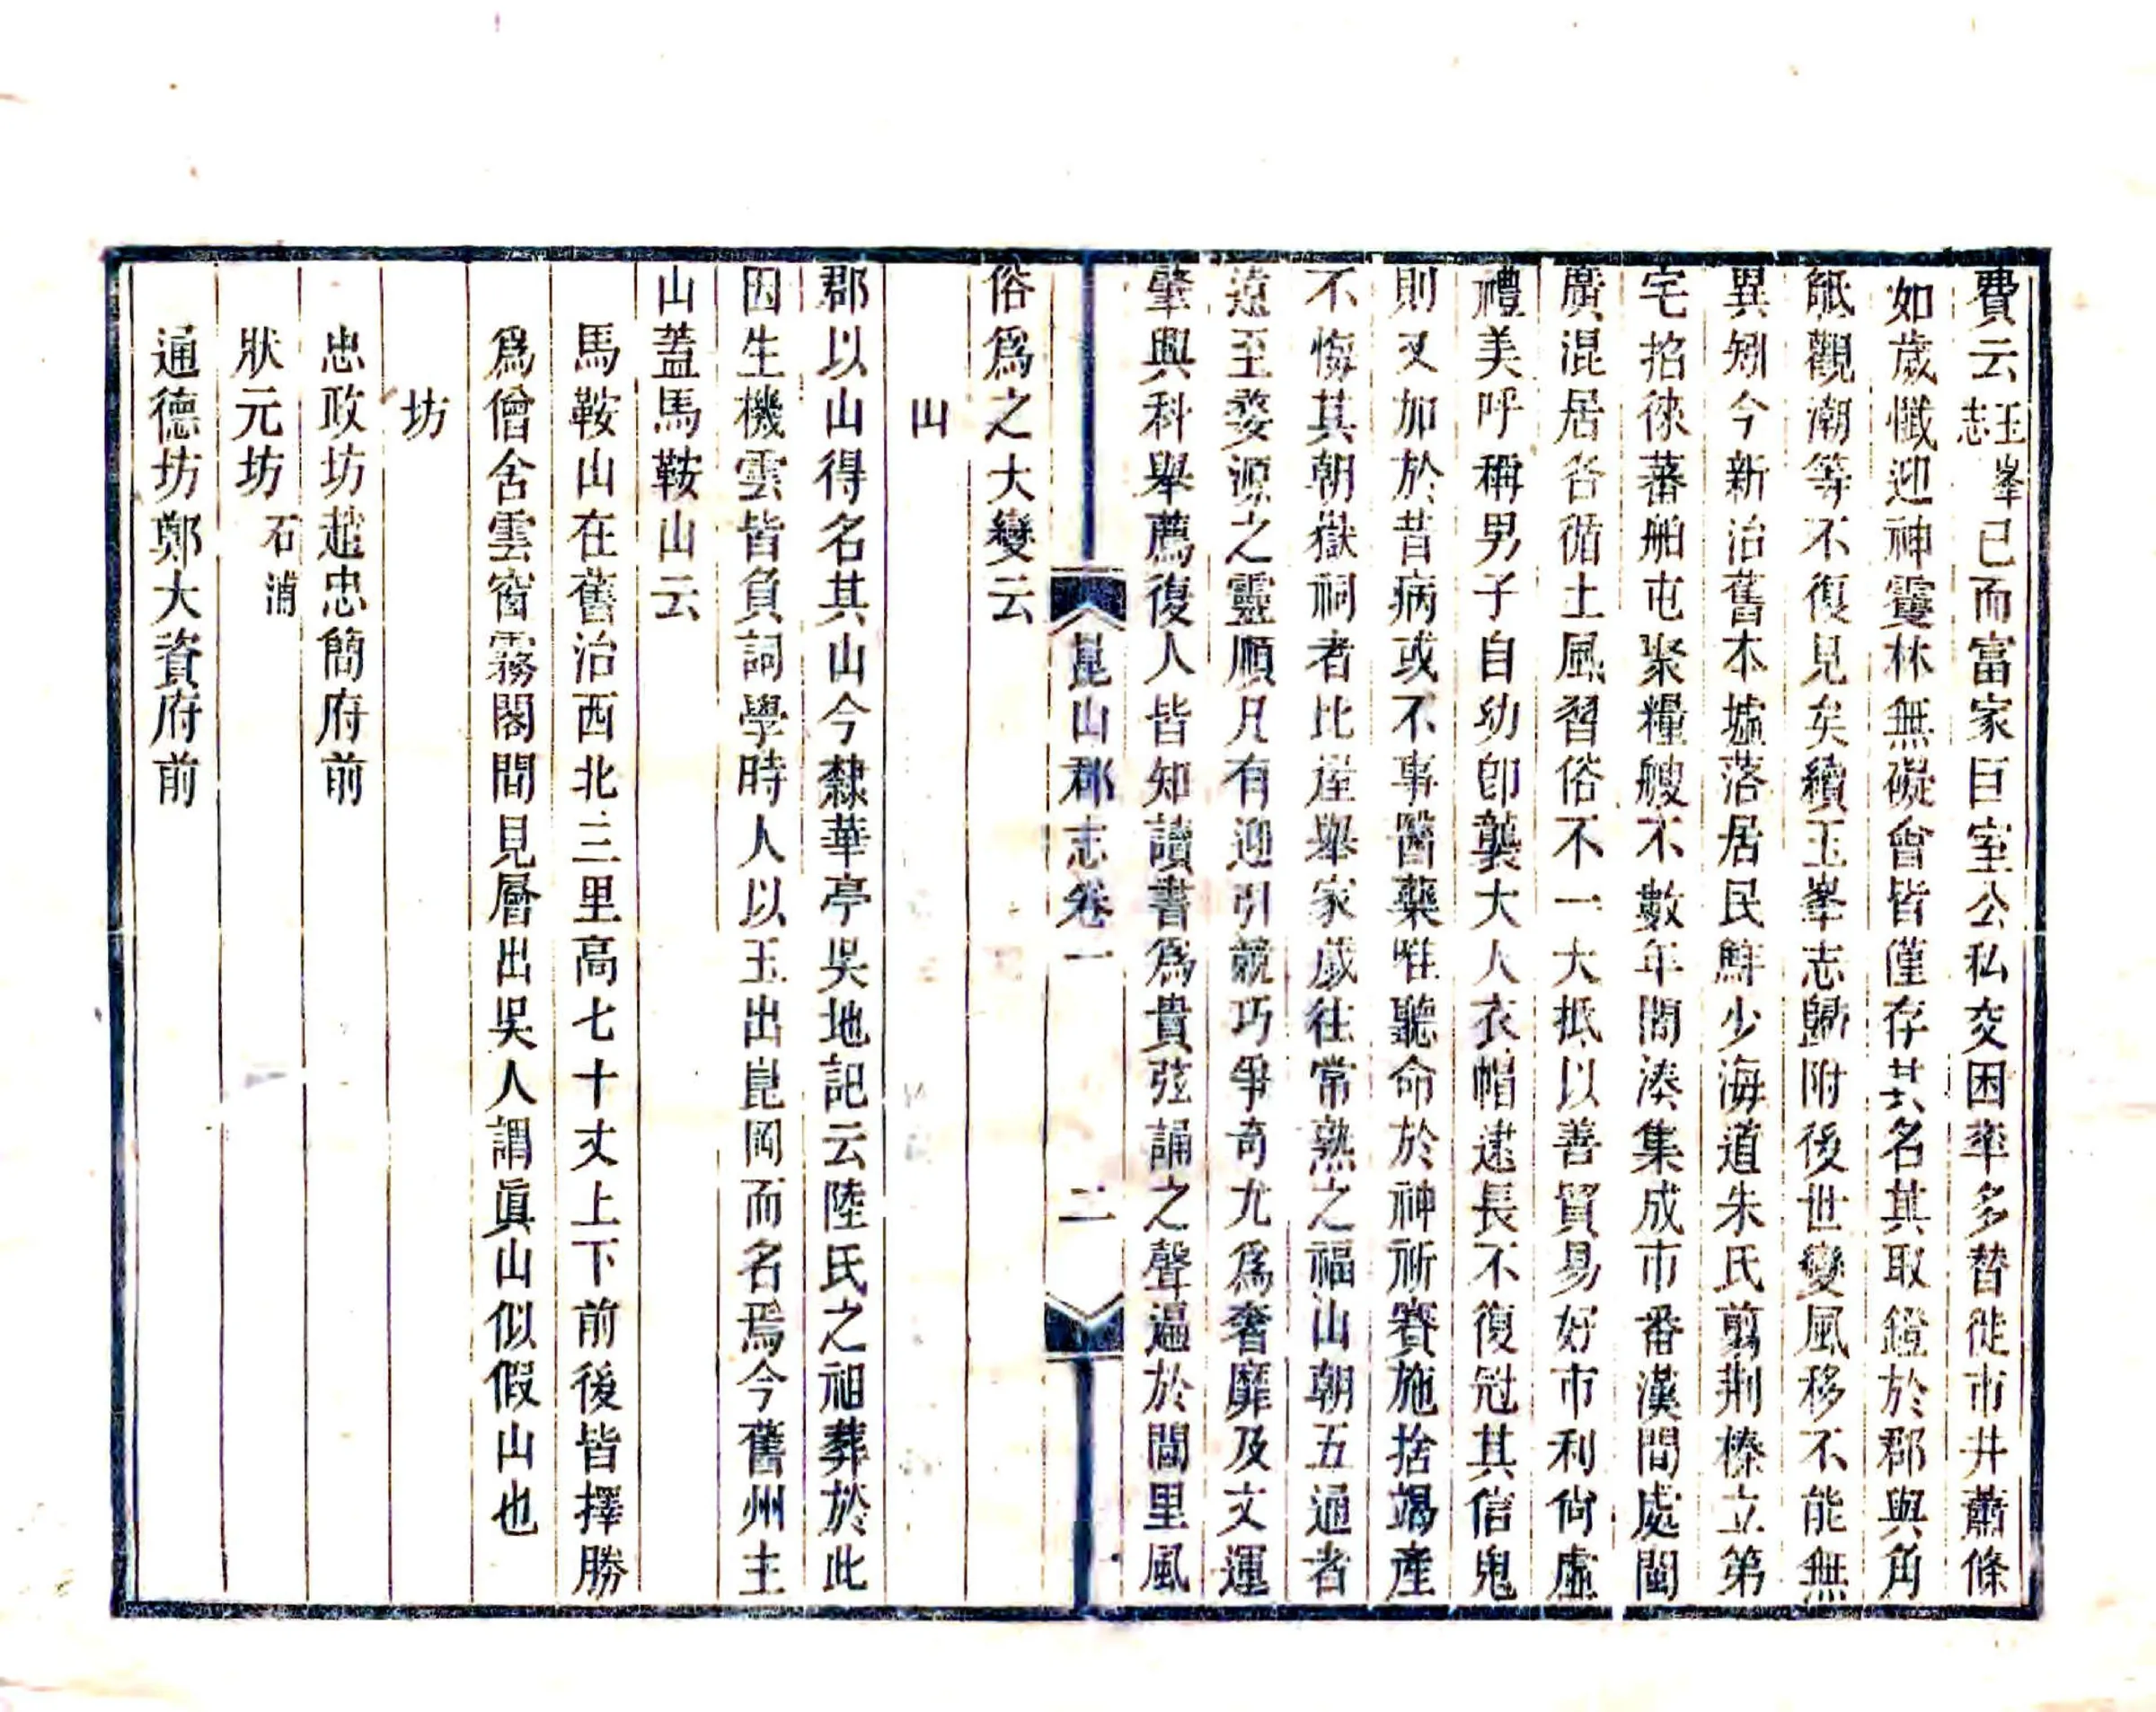 費云玉峯志已而富家巨室公私交困率多替徙市井蕭條
如歲懺迎神靈林無礙會皆僅存其名其取鐙於郡與角
觝觀潮等不復見矣續玉峯志歸附後世變風移不能無
異矧今新治舊本墟落居民鮮少海道朱氏翦荆榛立第
宅招徠蕃舶屯聚糧艘不數年間湊集成市番漢間處閩
廣混居各循土風習俗不一大抵以善貿易好市利尙虛
禮美呼稱男子自幼卽襲大人衣帽逮長不復冠其信鬼
則又加於昔病或不事醫藥唯聽命於神祈賽施捨竭產
不悔其朝嶽祠者比崖舉家歲往常熟之福山朝五通者
遠至婺源之靈順凡有迎引競巧爭奇尤爲奢靡及文運
肇興科舉薦復人皆知讀書爲貴弦誦之聲遍於閭里風
崑山郡志卷一 二
俗爲之大變云
山
郡以山得名其山今隸華亭吳地記云陸氏之祖葬於此
因生機雲皆負詞學時人以玉出崑岡而名焉今舊州主
山蓋馬鞍山云
馬鞍山在舊治西北三里高七十丈上下前後皆擇勝
爲僧舍雲窗霧閣間見層出吳人謂眞山似假山也
坊
忠政坊趙忠簡府前
狀元坊石浦
通德坊鄭大資府前